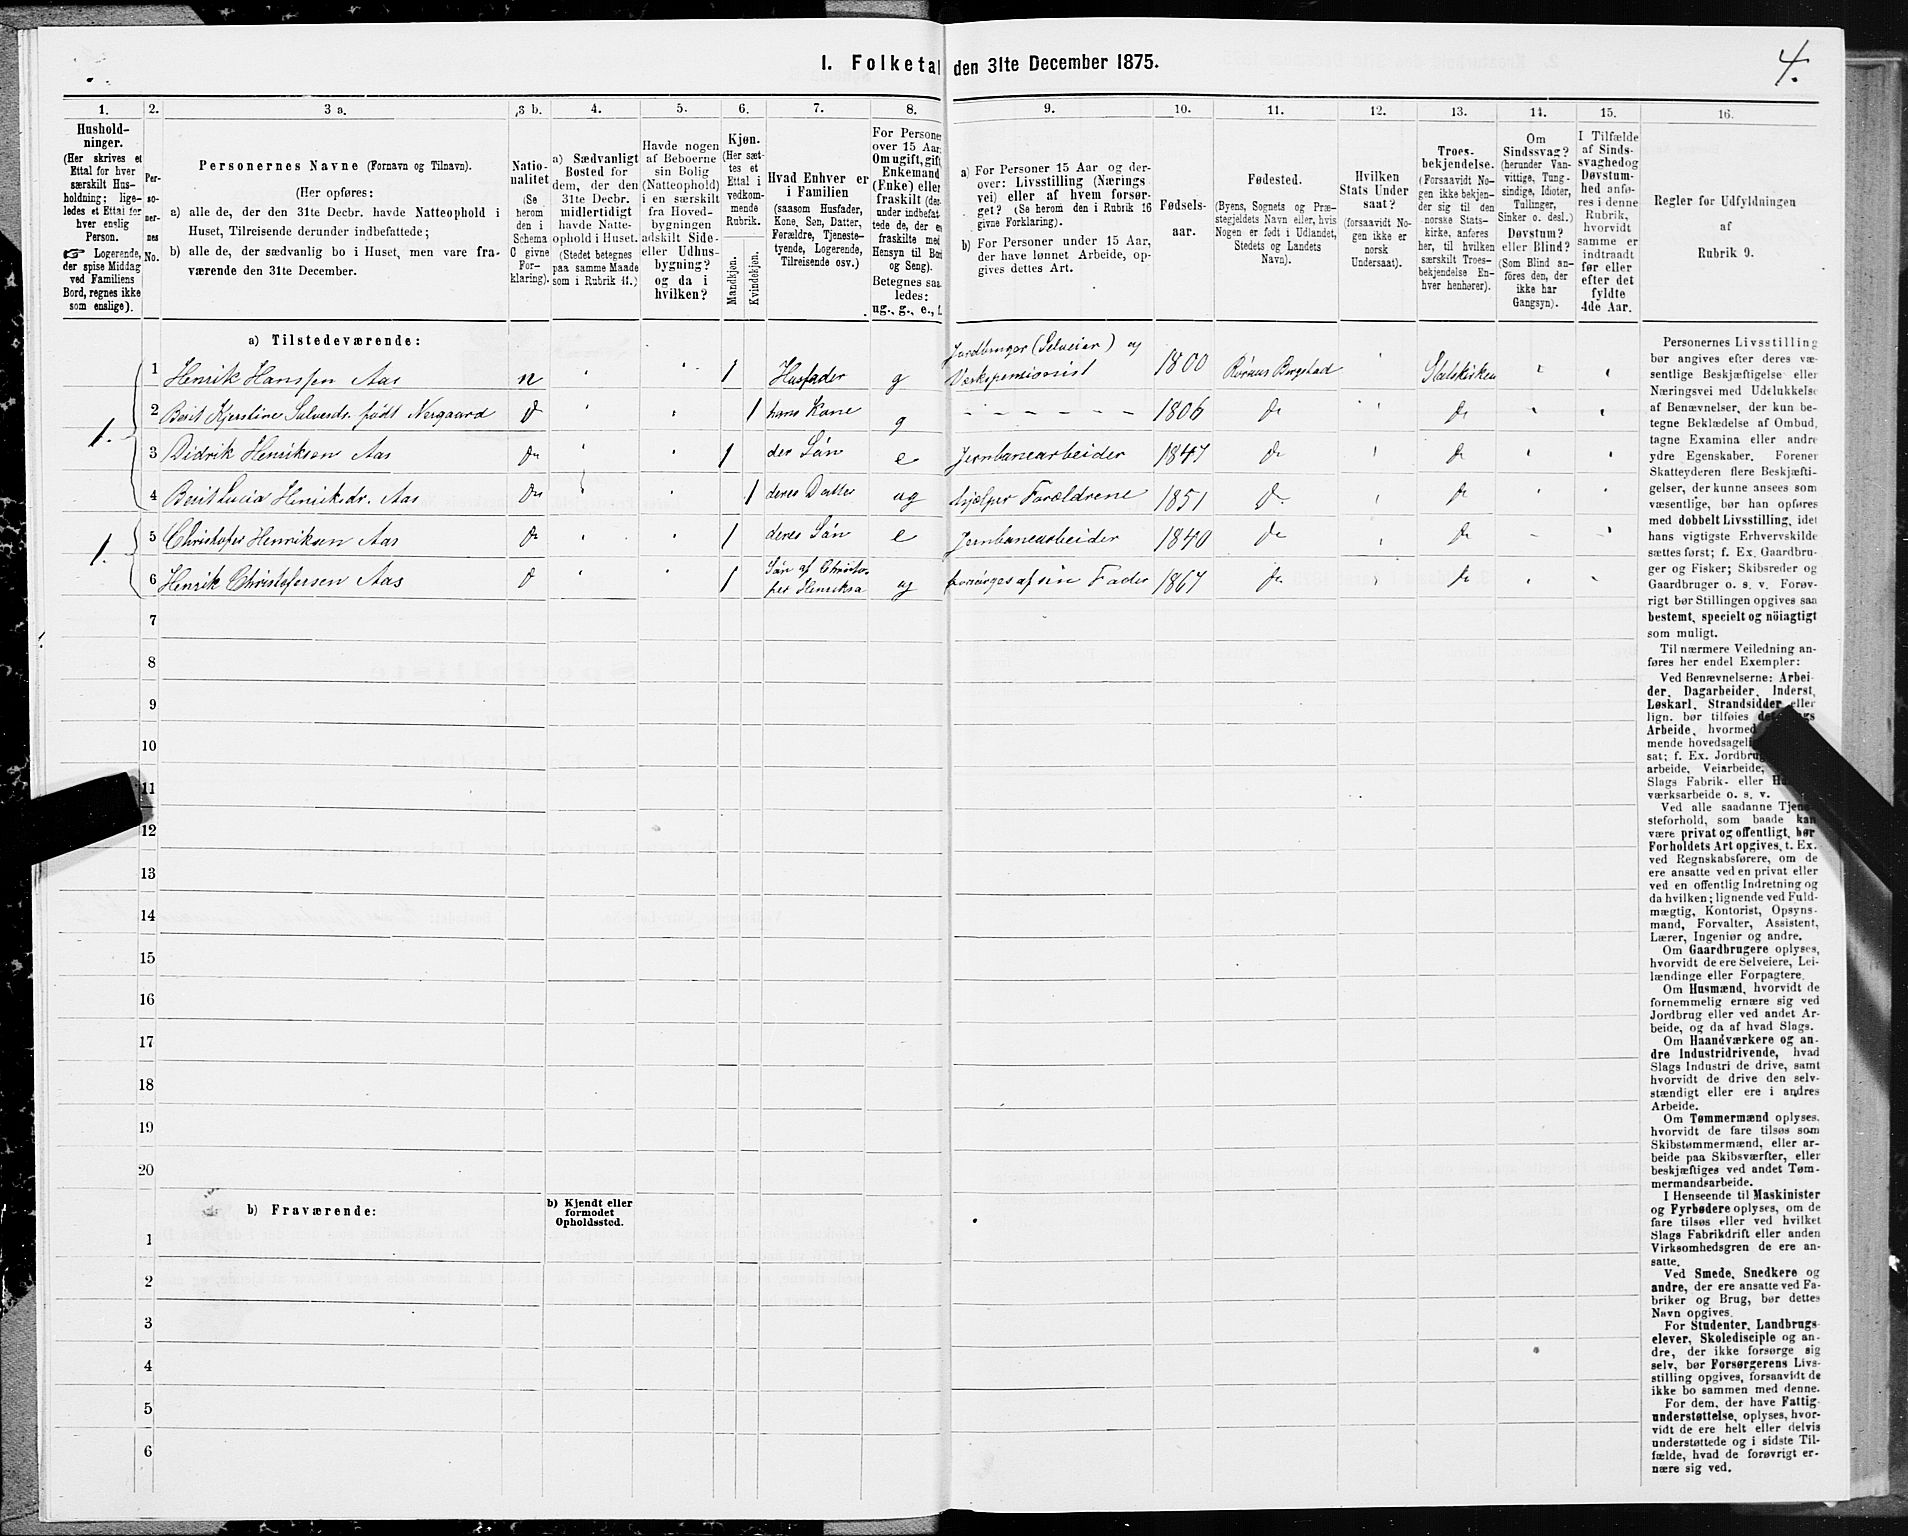 4.
I. Folketal den 31te December 1875.
1. 2. 3 a. 3 b. 4. 5. 6. 7. 8. 9. 10. 11. 12. 13. 14. 15. 16.
Hushold-
ninger.
(Her skrives et
Ettal for hver
særskilt Hus-
holdning; lige-
ledes et Ettal for
hver enslig
Person.
☞ Logerende,
der spise Middag
ved Familiens
Bord, regnes ikke
som enslige).
Per-
so-
ner-
nes
No.
Personernes Navne (Fornavn og Tilnavn).
(Her opføres:
a) alle de, der den 31te Decbr. havde Natteophold i
Huset, Tilreisende derunder indbefattede;
b) alle de, der sædvanlig bo i Huset, men vare fra-
værende den 31te December.
Natio-
nalitet
(Se
herom
den i
Schema
C givne
For-
klaring).
a) Sædvanligt
Bosted for
dem, der den
31te Decbr.
midlertidigt
havde Natte-
ophold i Huset.
(Stedet betegnes
paa samme Maade
som i Rubrik 11.)
Havde nogen
af Beboerne
sin Bolig
(Natteophold)
i en særskilt
fra Hoved-
bygningen
adskilt Side-
eller Udhus-
bygning?
og da i
hvilken?
Kjøn.
(Her sæt-
tes et
Ettal i
vedkom-
mende
Rubrik.
Mandkjøn.
Kvindekjøn.
Hvad Enhver er
i Familien
(saasom Husfader,
Kone, Søn, Datter,
Forældre, Tjeneste-
tyende, Logerende,
Tilreisende osv.)
For Personer
over 15 Aar:
Om ugift, gift,
Enkemand
(Enke) eller
fraskilt (der-
under indbefat-
tede de, der ere
fraskilte med
Hensyn til Bord
og Seng).
Betegnes saa-
ledes:
ug., g., e., f.
a) For Personer 15 Aar og der-
over: Livsstilling (Nærings-
vei) eller af hvem forsør-
get? (Se herom den i Rubrik 16
givne Forklaring).
b) For Personer under 15 Aar,
der have lønnet Arbeide, op-
gives dettes Art.
Fødsels-
aar.
Fødested.
(Byens, Sognets og Præ-
stegjeldets Navn eller, hvis
Nogen er født i Udlandet,
Stedets og Landets
Navn).
Hvilken
Stats Under-
saat?
(forsaavidt No-
gen ikke er
norsk
Undersaat).
Troes-
bekjendelse.
(Forsaavidt No-
gen ikke bekjen-
der sig til den
norske Stats-
kirke, anføres
her, til hvilken
særskilt Troes-
bekjendelse En-
hver henhører).
Om
Sindssvag?
(herunder Van-
vittige, Tung-
sindige, Idioter,
Tullinger,
Sinker o. desl.)
Døvstum?
eller Blind?
(Som Blind an-
føres den, der
ikke har
Gangsyn).
I Tilfælde
af Sinds-
svaghed og
Døvstum-
hed anfø-
res i denne
Rubrik,
hvorvidt
samme er
indtraadt
før eller
efter det
fyldte
4de Aar.
Regler for Udfyldningen
af
Rubrik 9.
a) Tilstedeværende:
1. 1 Henrik Hanssen Aas n 1 Husfader g Jordbruger (Selveier) og Værkspensionist 1800 Røraas Bergstad Statskirken
2 Berit Kjerstine Salvesdr. født Nergaard do 1 hans Kone g - - - - - - 1806 do do
3 Didrik Henriksen Aas do 1 der Søn e Jernbanearbeider 1847 do do
4 Berit Lucia Henriksdr. Aas do 1 deres Datter ug hjælper Forældrene 1851 do do
1. 5 Christofer Henriksen Aas do 1 deres Søn e Jernbanearbeider 1840 do do
6 Henrik Christofersen Aas do 1 Søn af Christofer Henriksen ug forsørges af sin Fader 1867 do do
7
8
9
10
11
12
13
14
15
16
17
18
19
20
b) Fraværende:
b) Kjendt eller
formodet
Opholdssted.
1
2
3
4
5
6
Personernes Livsstilling
bør angives efter deres væ-
sentlige Beskjæftigelse eller
Næringsvei med Udelukkelse
af Benævnelser, der kun be-
tegne Beklædelse af Ombud,
tagne Examina eller andre
ydre Egenskaber. Forener
Skatteyderen flere Beskjæfti-
gelser, der kunne ansees som
væsentlige, bør han opføres
med dobbelt Livsstilling, idet
hans vigtigste Erhvervskilde
sættes først; f. Ex. Gaardbru-
ger og Fisker; Skibsreder og
Gaardbruger o. s. v. Forøv-
rigt bør Stillingen opgives saa
bestemt, specielt og nöiagtigt
som muligt.
Til nærmere Veiledning an-
føres her endel Exempler:
Ved Benævnelserne: Arbei-
der, Dagarbeider, Inderst,
Løskarl, Strandsidder eller
lign. bør tilføies
Arbeide, hvormed
mende hovedsageli
sat; f. Ex. Jordbrug
arbeide, Veiarbeide;
Slags Fabrik- eller
værksarbeide o. s. v.
Ved alle saadanne Tjene-
steforhold, som baade kan
være privat og offentligt, bør
Forholdets Art opgives, t. Ex.
ved Regnskabsførere, om de
ere ansatte ved en privat eller
ved en offentlig Indretning og
da hvilken; lignende ved Fuld-
mægtig, Kontorist, Opsyns-
mand, Forvalter, Assistent,
Lærer, Ingeniør og andre.
Om Gaardbrugere oplyses,
hvorvidt de ere Selveiere, Lei-
lændinge eller Forpagtere.
Om Husmænd, hvorvidt de
fornemmelig ernære sig ved
Jordbrug eller ved andet Ar-
beide, og da af hvad Slags.
Om Haandværkere og an-
dre Industridrivende, hvad
Slags Industri de drive, samt
hvorvidt de drive den selv-
stændigt eller ere i andres
Arbeide.
Om Tømmermænd oplyses,
hvorvidt de fare tilsøs som
Skibstømmermænd, eller ar-
beide paa Skibsværfter, eller
beskjæftiges ved andet Tøm-
mermandsarbeide.
I Henseende til Maskinister
og Fyrbødere oplyses, om de
fare tilsøs eller ved hvilket
Slags Fabrikdrift eller anden
Virksomhedsgren de ere an-
satte.
Ved Smede, Snedkere og
andre, der ere ansatte ved Fa-
briker og Brug, bør dettes
Navn opgives.
For Studenter, Landbrugs-
elever, Skoledisciple og an-
dre, der ikke forsørge sig
selv, bør Forsørgerens Livs-
stilling opgives, forsaavidt de
ikke bo sammen med denne.
For dem, der have Fattig-
understøttelse, oplyses, hvor-
vidt de ere helt eller delvis
understøttede og i sidste Til-
fælde, hvad de forøvrigt er-
nære sig ved.